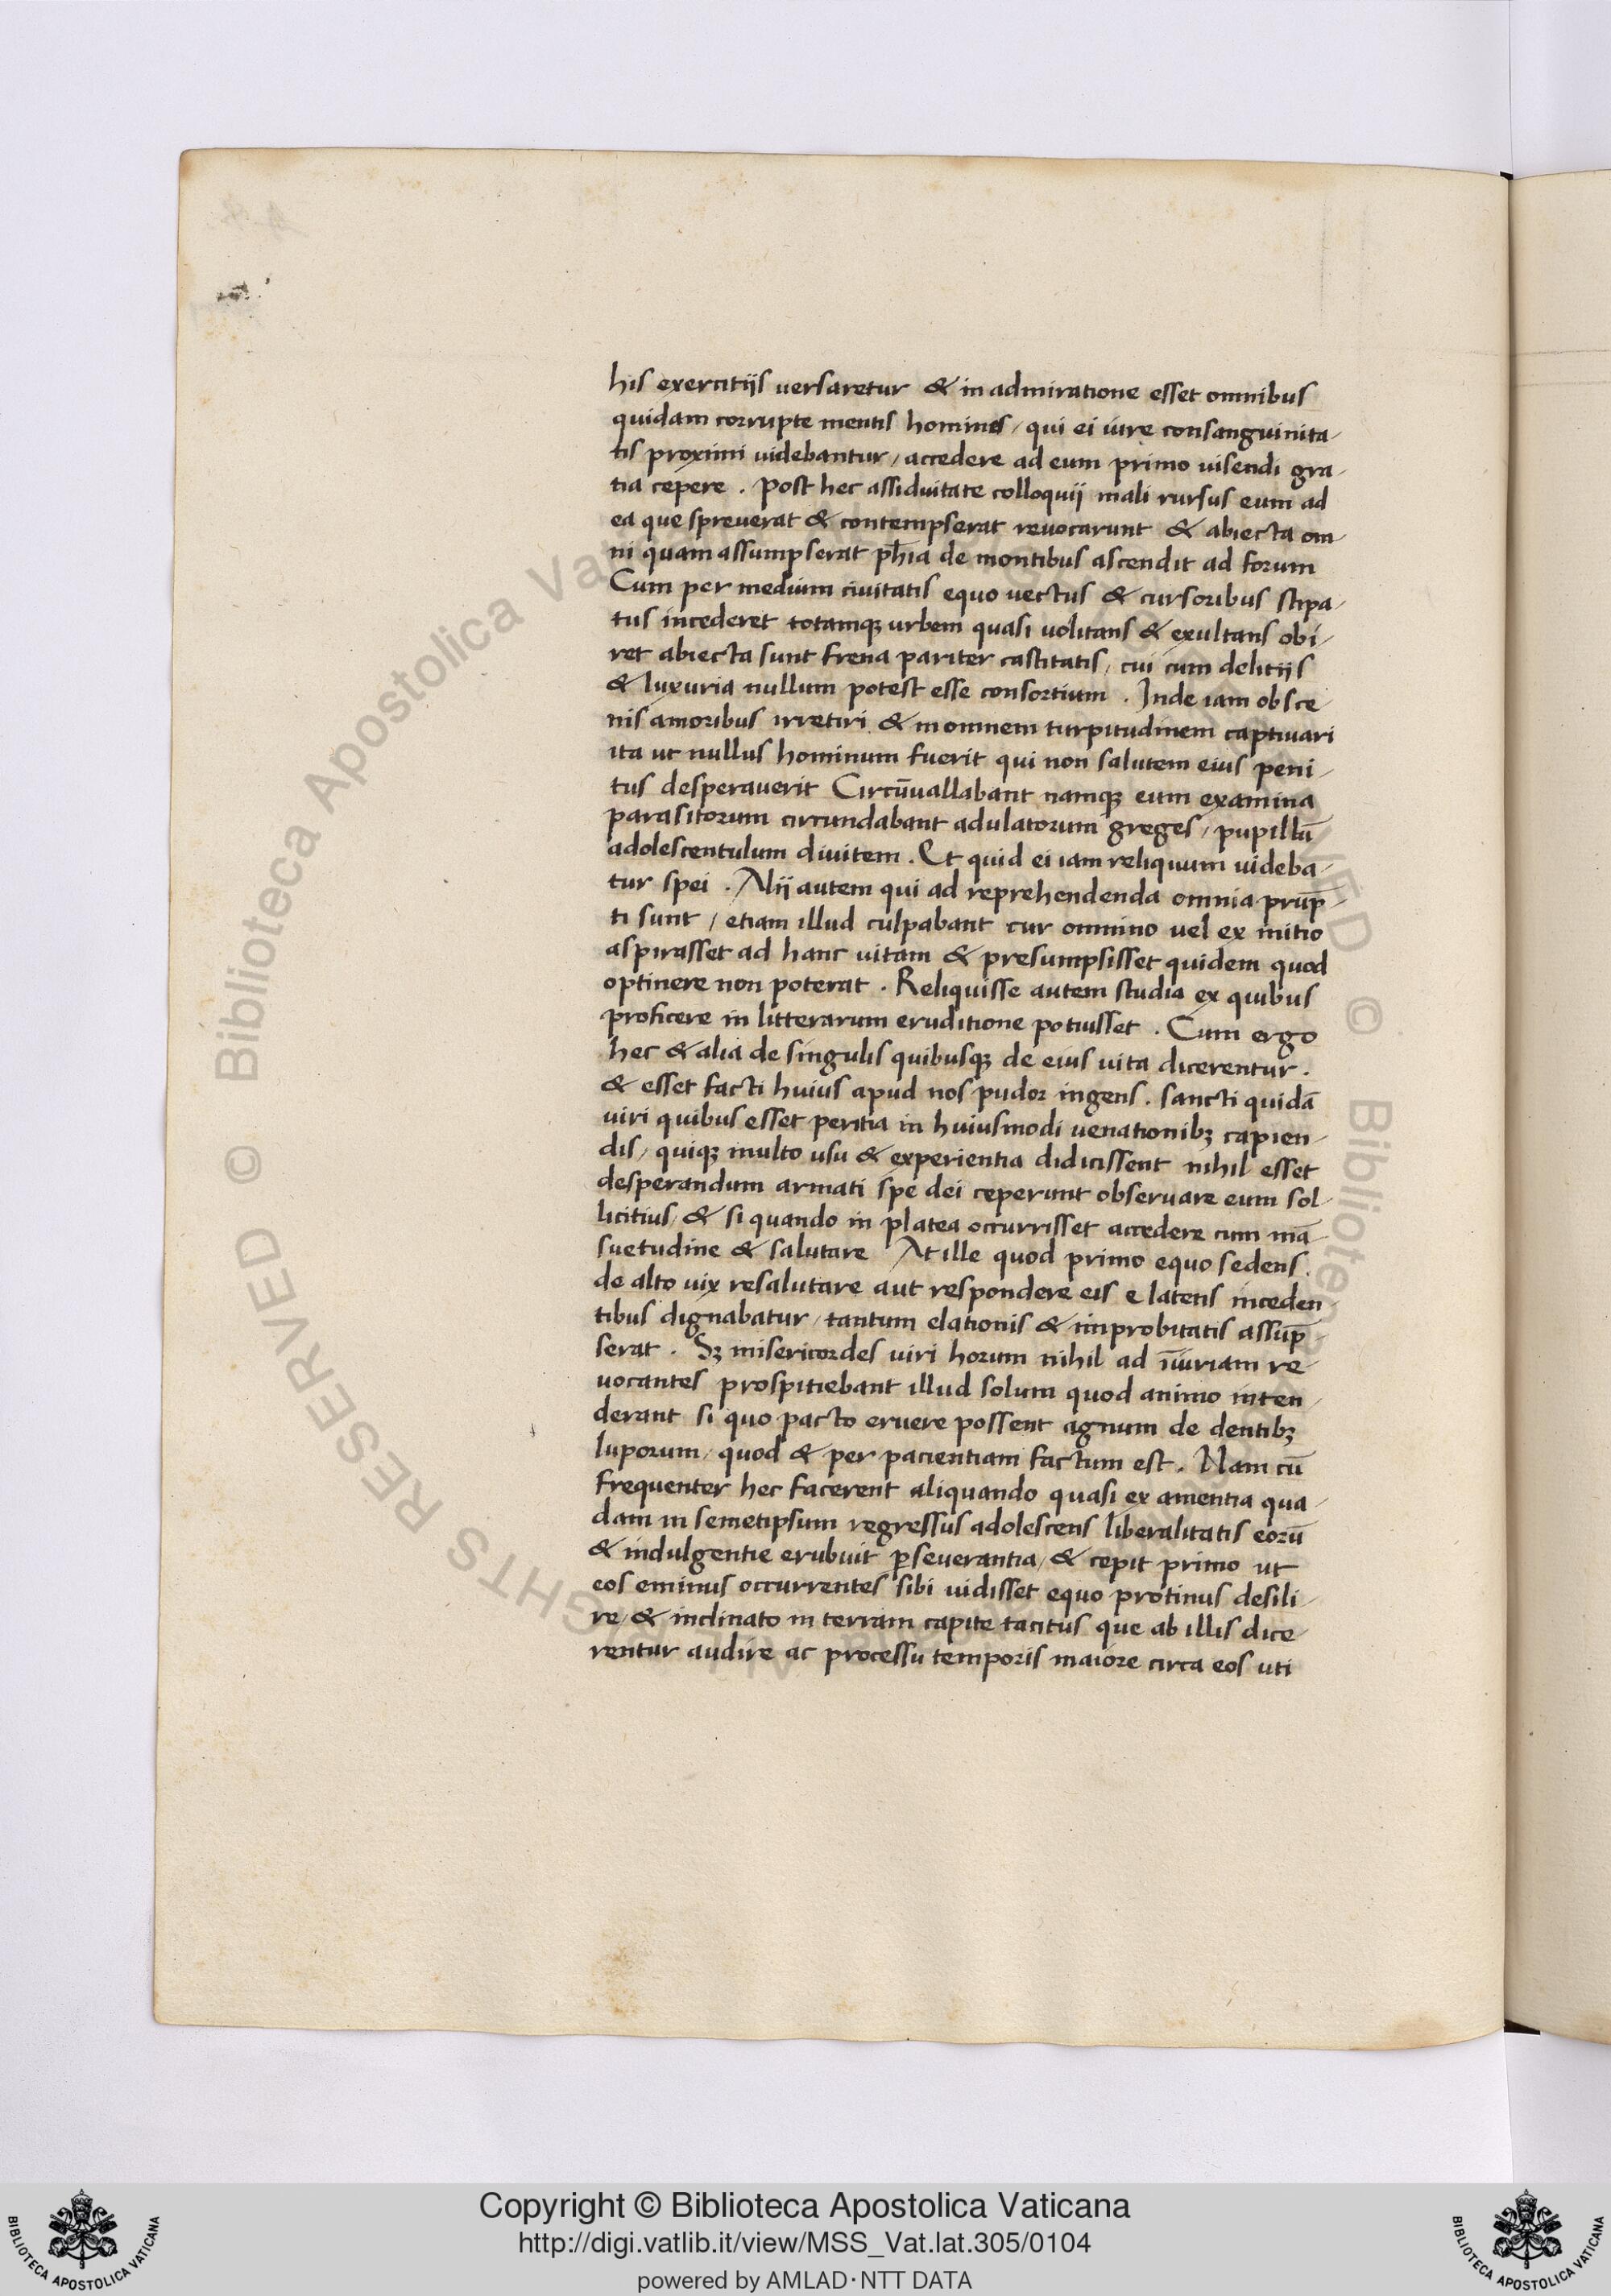 his exercitijs versaretur & in admiratione esset omnibus
quidam corrupte mentis homines / qui ei iure consanguinita-
tis proximi videbantur / accedere ad eum primo visendi gra-
tia cepere . post hec assiduitate colloquij mali rursus eum ad
ea que spreverat & contempserat revocarunt & abiecta om-
ni quam assumpserat phīa de montibus ascendit ad forum
Cum per medium civitatis equo vectus & cursoribus stipa-
tus incederet totamqꝫ urbem quasi volitans & exultans obi-
ret abiecta sunt frena pariter castitatis / cui cum delitijs
& luxuria nullum potest esse consortium . Inde iam obsce-
nis amoribus irretiri & in omnem turpitudinem captivari
ita ut nullus hominum fuerit qui non salutem eius peni-
tus desperaverit Circūvallabant namqꝫ eum examina
parasitorum circundabant adulatorum greges / pupillū
adolescentulum divitem . Et quid ei iam reliquum videba-
tur spei . Alij autem qui ad reprehendenda omnia prūp-
ti sunt / etiam illud culpabant cur omnino vel ex initio
aspirasset ad hanc vitam & presumpsisset quidem quod
optinere non poterat . Reliquisse autem studia ex quibus
proficere in litterarum eruditione potuisset . Cum ergo
hec & alia de singulis quibusqꝫ de eius vita dicerentur .
& esset facti huius apud nos pudor ingens . sancti quidā
viri quibus esset peritia in huiusmodi venationibꝫ capien-
dis / quiqꝫ multo usu & experientia didicissent nihil esset
desperandum armati spe dei ceperunt observare eum sol-
licitius / & si quando in platea occurrisset accedere cum mā-
suetudine & salutare At ille quod primo equo sedens .
de alto vix resalutare aut respondere eis e lateris inceden-
tibus dignabatur / tantum elationis & improbitatis assūp-
serat . Sꝫ misericordes viri horum nihil ad iniuriam re-
vocantes prospitiebant illud solum quod animo inten-
derant si quo pacto eruere possent agnum de dentibꝫ
luporum / quod & per pacientiam factum est . Nam cū
frequenter hec facerent aliquando quasi ex amentia qua-
dam in semetipsum regressus adolescens liberalitatis eorū
& indulgentie erubuit ꝑseverantia / & cepit primo ut
eos eminus occurrentes sibi vidisset equo protinus desili-
re / & inclinato in terram capite tacitus que ab illis dice-
rentur audire ac processu temporis maiore circa eos uti
© Biblioteca Apostolica Vaticana
ALL RIGHTS RESERVED
Copyright © Biblioteca Apostolica Vaticana
http://digi.vatlib.it/view/MSS_Vat.lat.305/0104
powered by AMLAD·NTT DATA
BIBLIOTECA APOSTOLICA VATICANA
BIBLIOTECA APOSTOLICA VATICANA